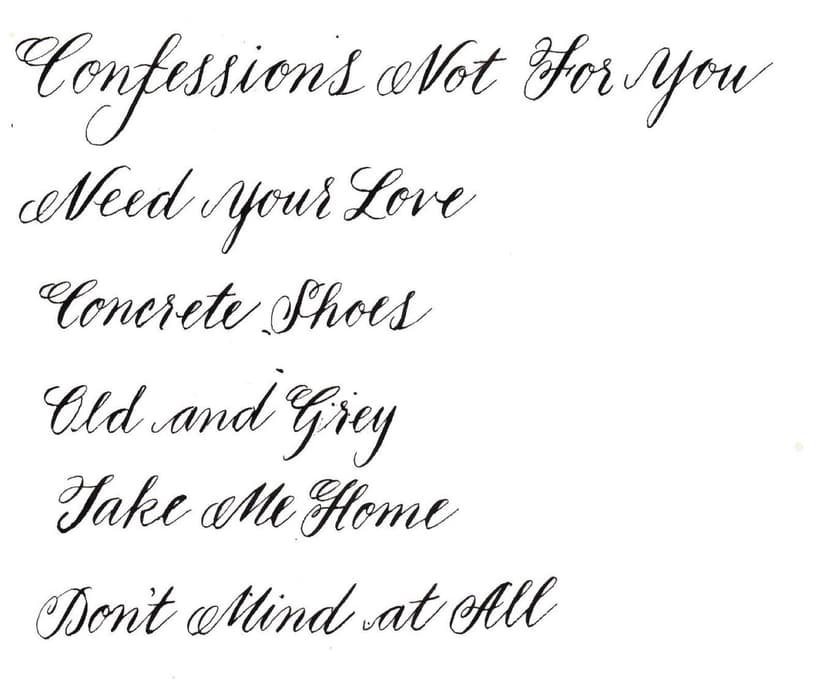 Confessions Not For You
Need your Love
Concrete Shoes
Old and Grey
Take Me Home
Don't Mind at All